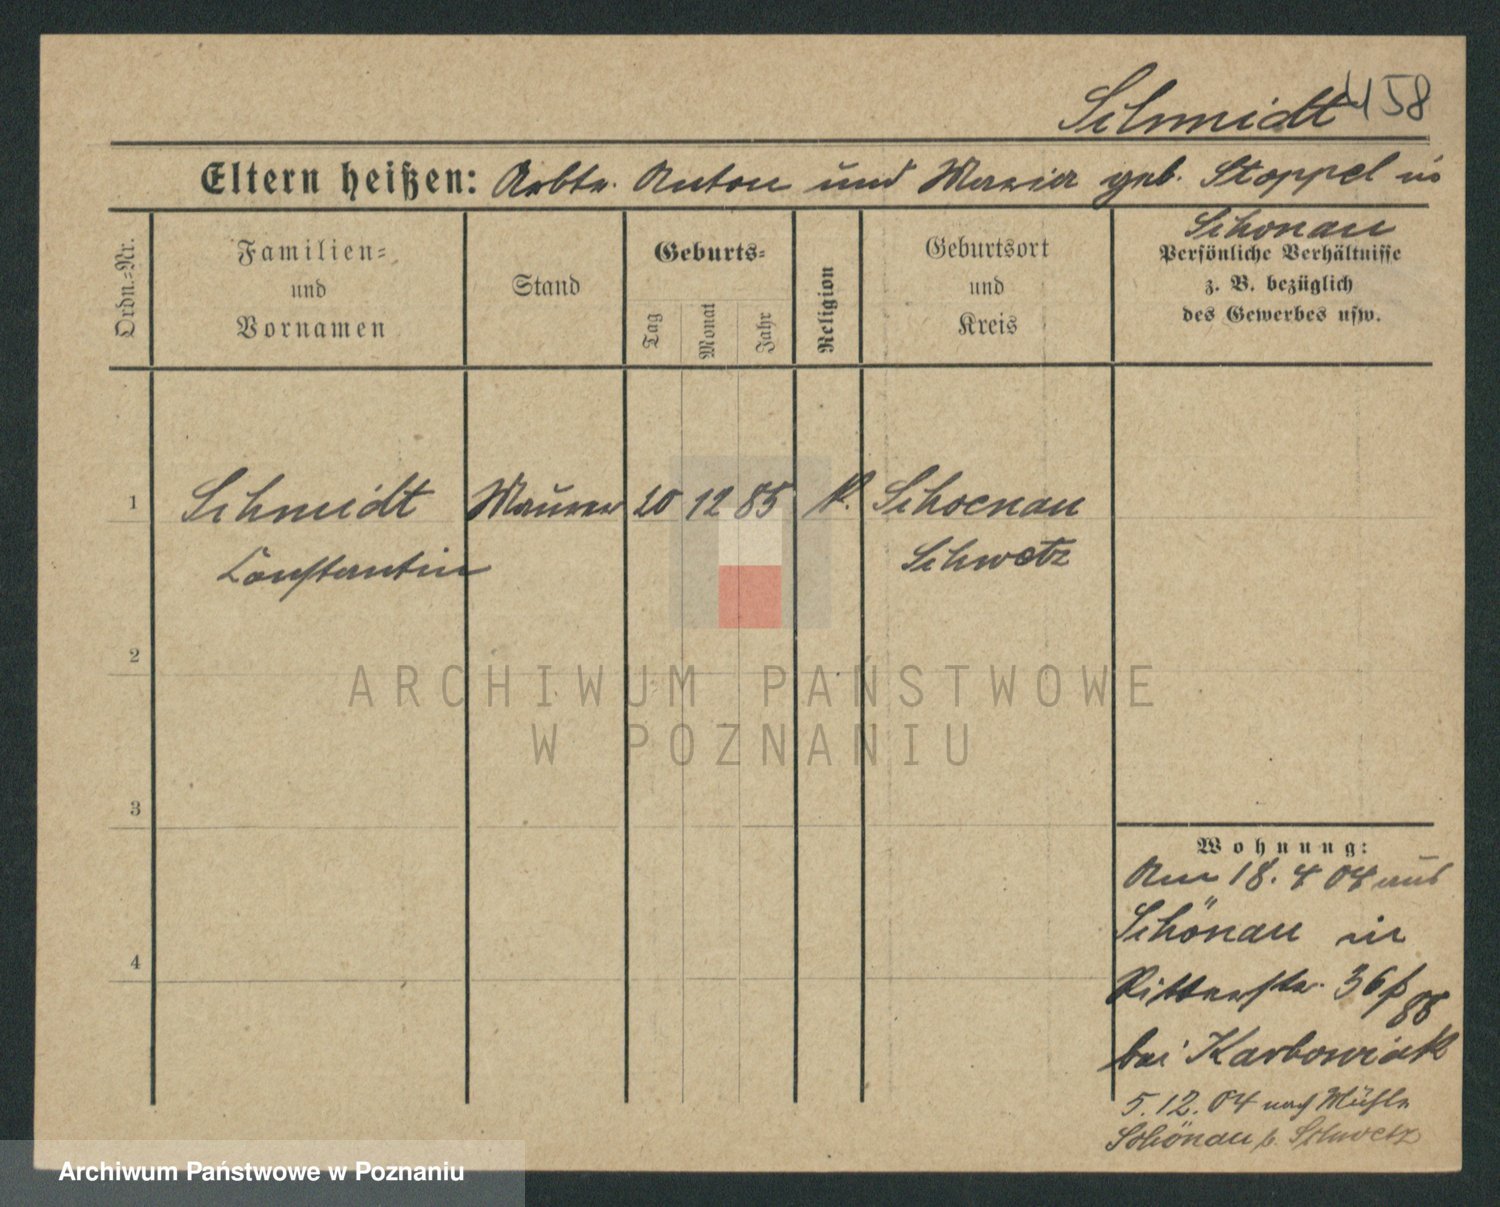 Schmidt 458
Eltern heißen: Arbtr. Anton und Maria geb. Stoppel in
Schönau
Ordn.=Nr.
Familien=
und
Vornamen
Stand
Geburts=
Tag
Monat
Jahr
Religion
Geburtsort
und
Kreis
Persönliche Verhältnisse
z. B. bezüglich
des Gewerbes usw.
1 Schmidt Maurer 20 12 85 k. Schoenau
Constantin Schwetz
2
3
4
ARCHIWUM PAŃSTWOWE
W POZNANIU
Wohnung:
Am 18. 4 04 aus
Schönau in
Ritterstr. 36
bei Karbowiak
5. 12. 04 nach Mühle
Schönau b. Schwetz
Archiwum Państwowe w Poznaniu